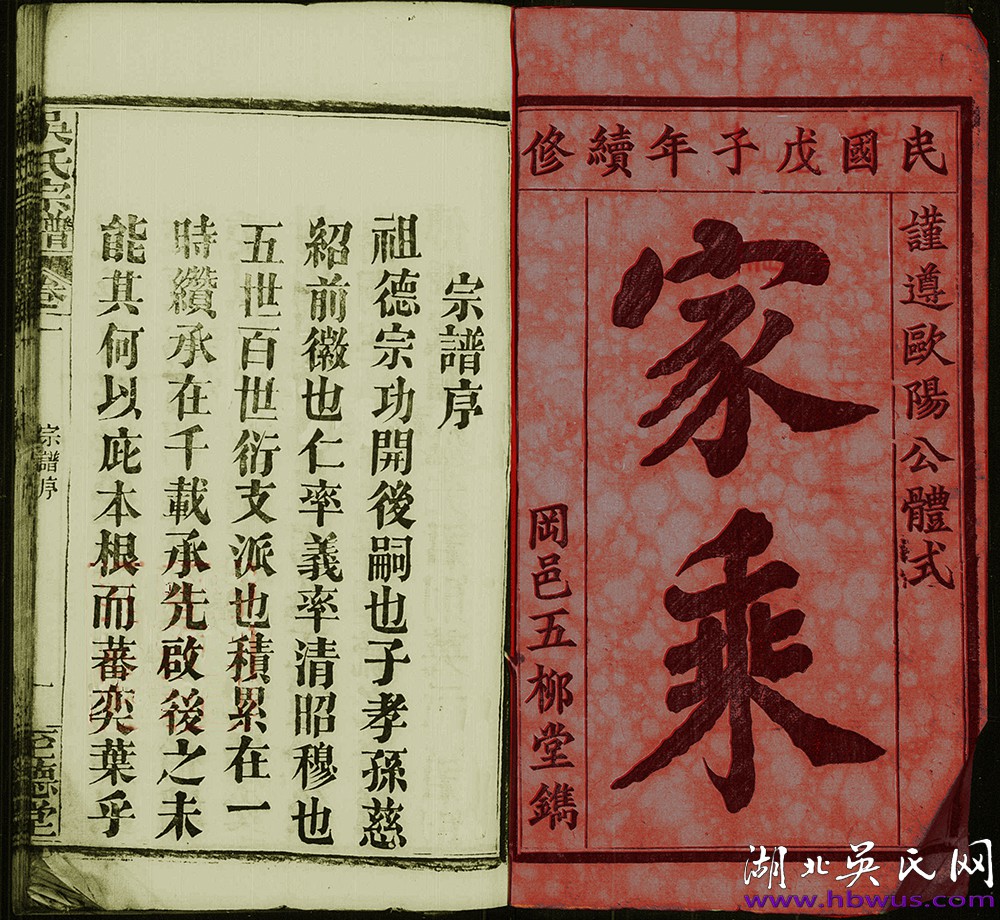 民國戊子年續修
謹遵歐陽公體式
家乘
岡邑五柳堂鐫
宗譜序
祖德宗功開後嗣也子孝孫慈
紹前徽也仁率義率清昭穆也
五世百世衍支派也積累在一
時纘承在千載承先啟後之未
能其何以庇本根而蕃奕葉乎
吳氏宗譜
卷一
宗譜序
一
至德堂
湖北吴氏网
www.hbwus.com